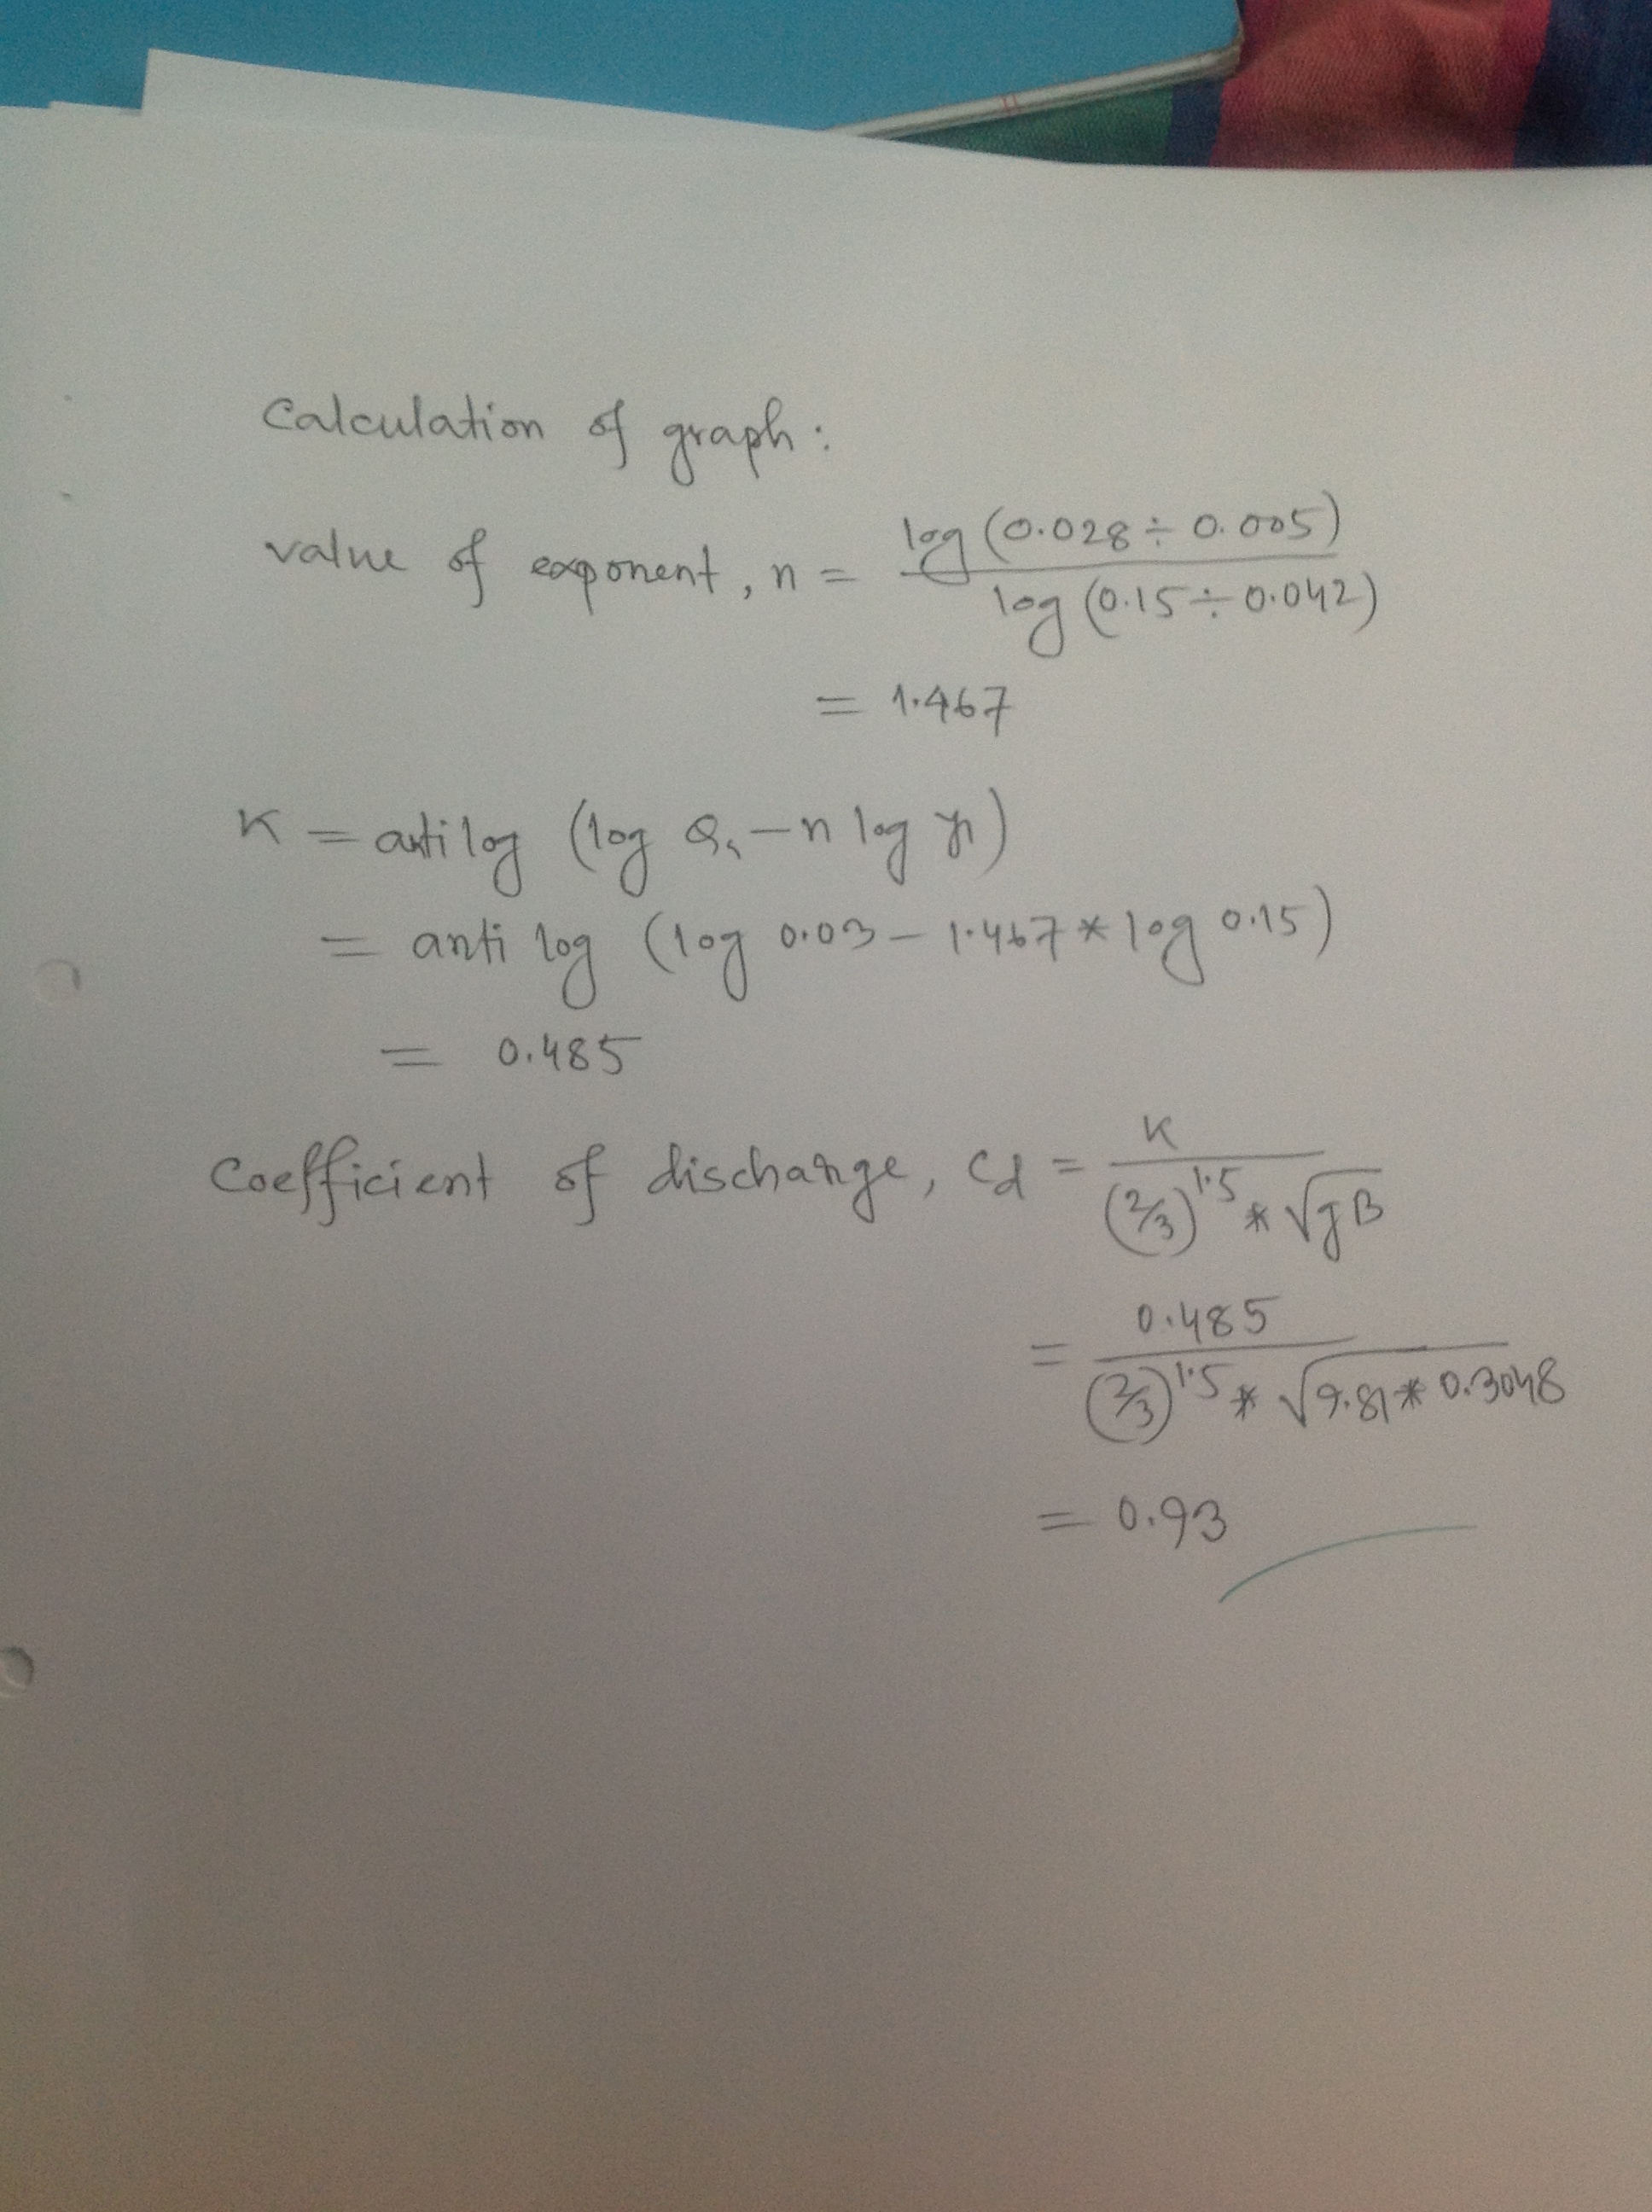 Calculation of graph:
value of exponent, n = log (0.028 ÷ 0.005) / log (0.15 ÷ 0.042)
= 1.467
K = antilog (log Q₁ - n log y₁)
= anti log (log 0.03 - 1.467 * log 0.15)
= 0.485
Coefficient of discharge, Cd = K / (2/3)^1.5 * √gB
= 0.485 / (2/3)^1.5 * √9.81 * 0.3048
= 0.93